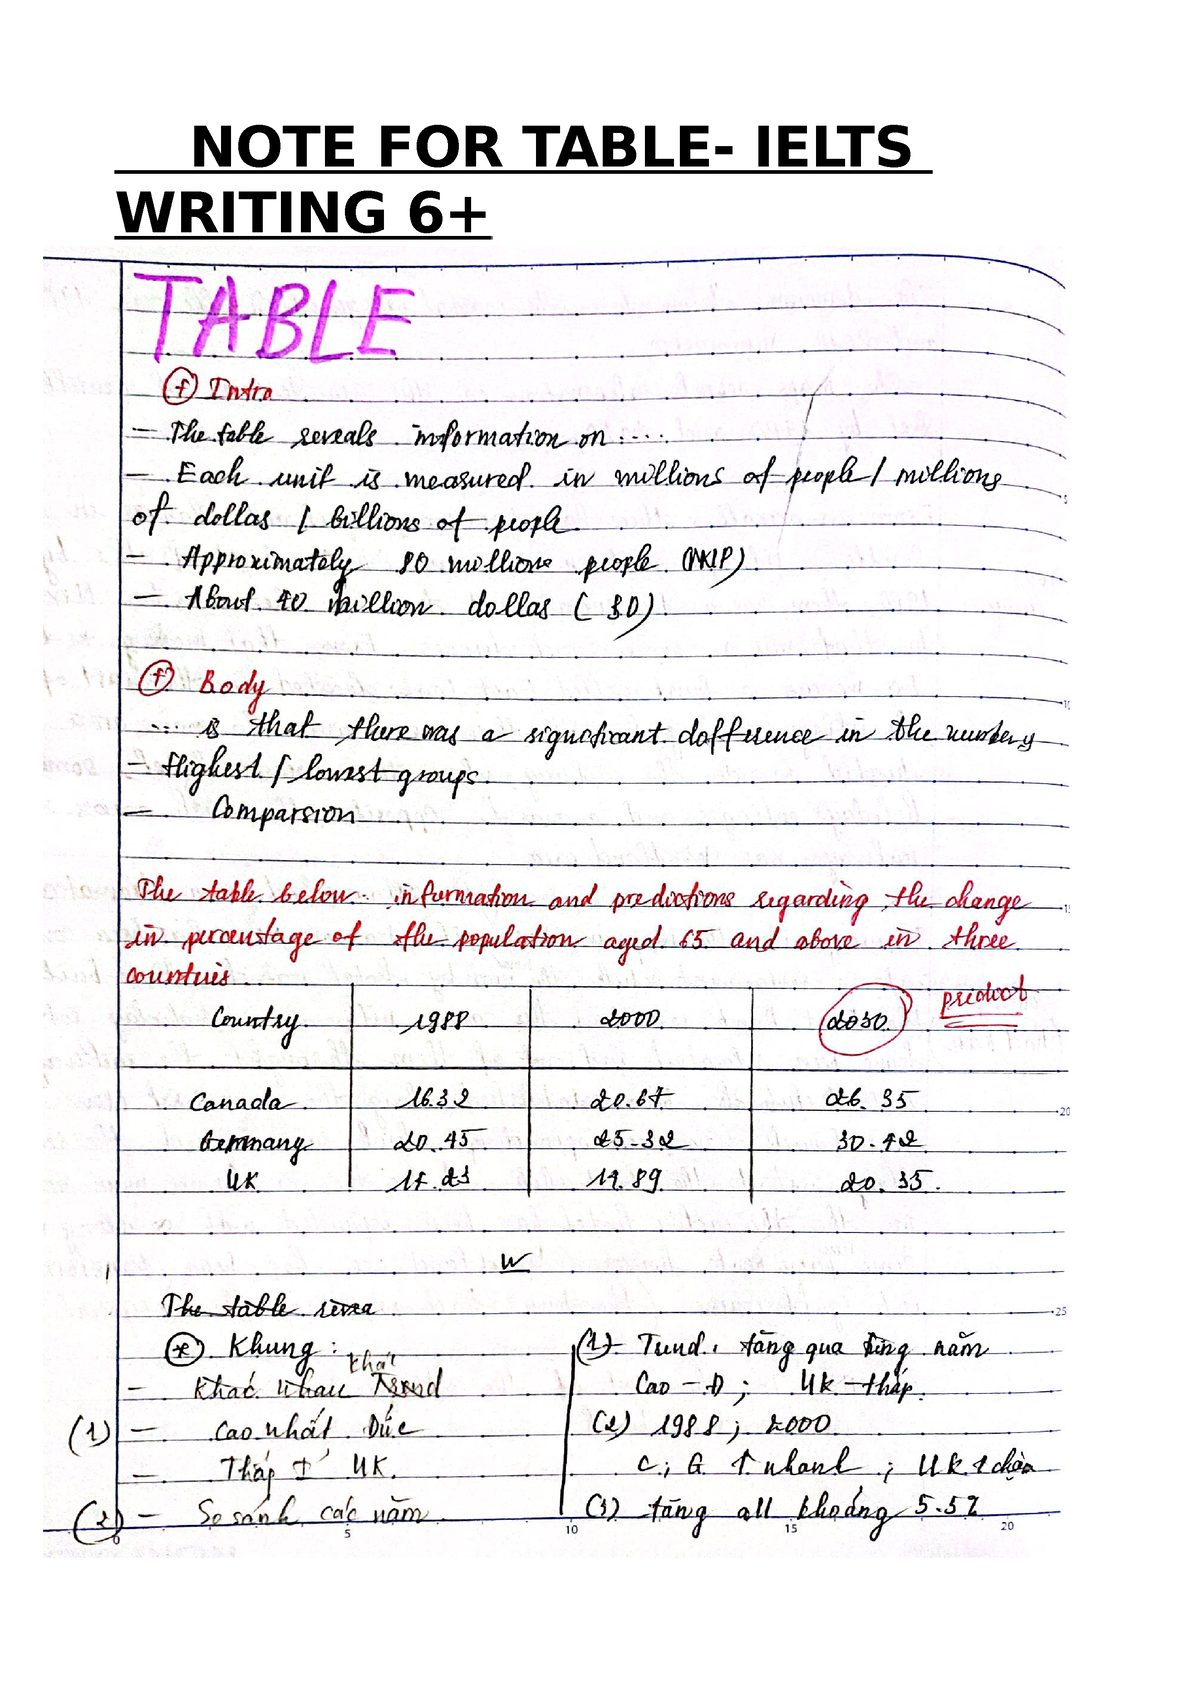 NOTE FOR TABLE- IELTS
WRITING 6+
TABLE
(+) Intro
- The table reveals information on ....
- Each unit is measured in millions of people / millions
of dollas / billions of people
- Approximately 80 millions people
- About 40 million dollas ( 30)
(+) Body
.... is that there was a significant dafference in the
- Highest / lowest groups
- Comparsion
The table below information and predictions regarding the change
in percentage of the population aged 65 and above in three
countries
Country 1988 2000 2030 predict
Canada 16.32 20.67 26.35
Germang 20.45 25.32 30.42
UK 17.23 19.89 20.35
W
The table revea
(*) Khung : (1) Trend : tăng qua từng năm
khác
- Khác nhau Trend Cao - Đ ; UK - thấp
(1) - Cao nhất Đức (2) 1988 ; 2000
- Thấp I UK. C ; G ↑ nhanh ; UK ↑ chậm
(2) - So sánh các năm (3) tăng all khoảng 5-5%
0 5 10 15 20
5
10
15
20
25